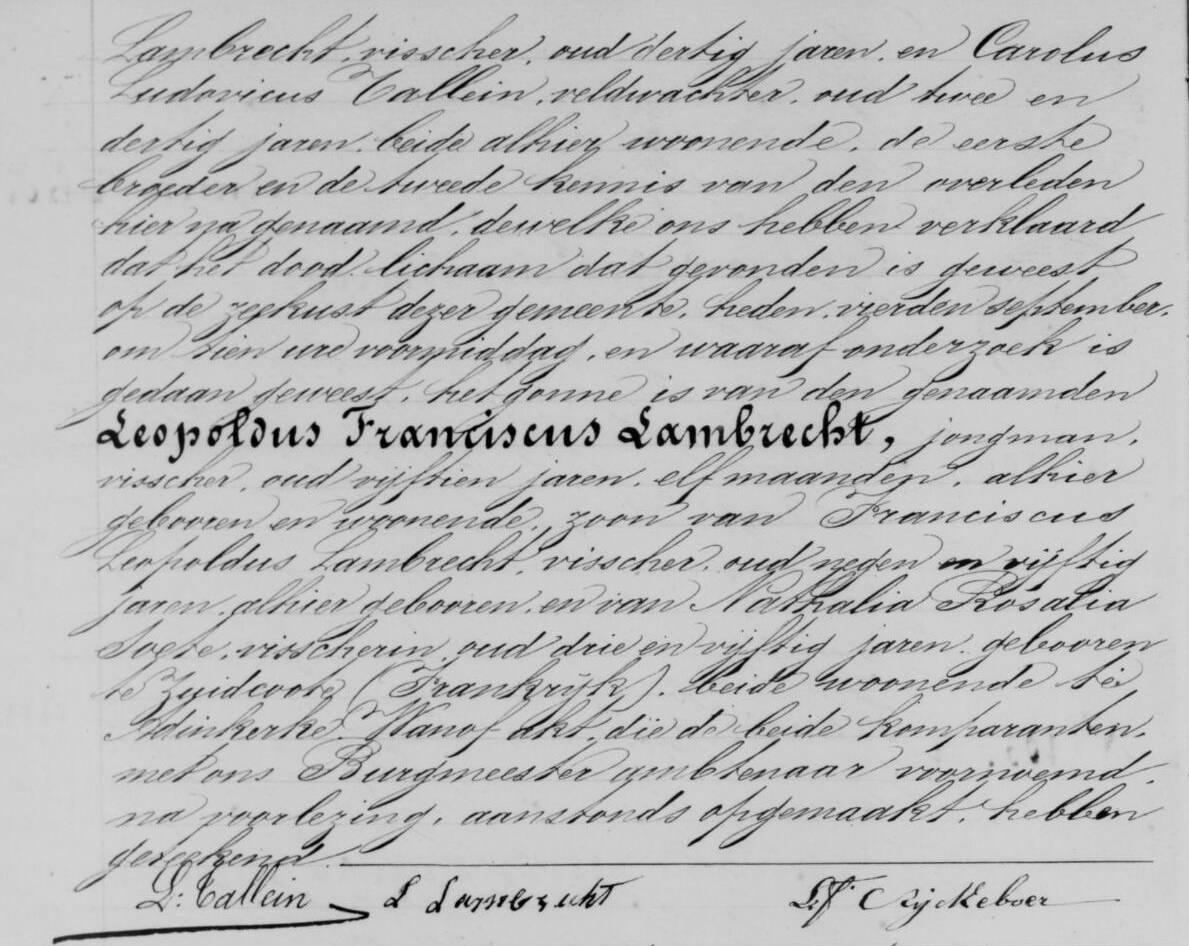 Lambrecht, visscher, oud dertig jaren, en Carolus
Ludovicus Tallein, veldwachter, oud twee en
dertig jaren, beide alhier woonende, de eerste
broeder en de tweede kennis van den overleden
hier na genaamd, dewelke ons hebben verklaard
dat het dood lichaam dat gevonden is geweest
op de zeekust dezer gemeente, heden, vierden september,
om tien ure voormiddag, en waaraf onderzoek is
gedaan geweest, het gonne is van den genaamden
Leopoldus Franciscus Lambrecht, jongman,
visscher, oud vijftien jaren, elf maanden, alhier
gebooren en woonende, zoon van Franciscus
Leopoldus Lambrecht, visscher, oud negen en vijftig
jaren, alhier gebooren, en van Nathalia Rosalia
Soete, visscherin, oud drie en vijftig jaren, gebooren
te Zuidcoote (Frankrijk), beide woonende te
Adinkerke. Wanof akt, die de beide komparanten,
met ons Burgmeester ambtenaar voornoemd,
na voorlezing, aanstonds opgemaakt, hebben
geteekend.
L: Tallein L Lambrecht Ryckeboer